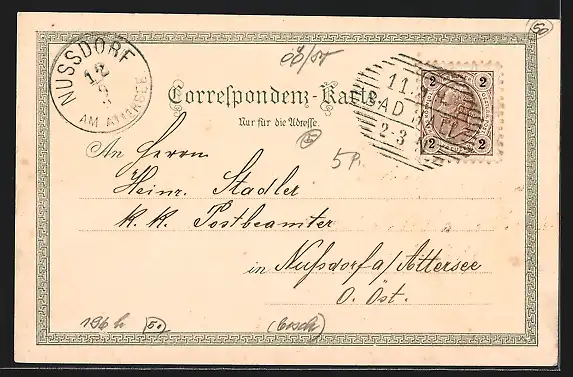 50
NUSSDORF
12
AM ATTERSEE
Correspondenz-Karte
Nur für die Adresse.
2 2
2 2
11.
BAD HALL
2-3
An Herrn
Heinr. Stadler
K. K. Postbeamter
in Nußdorf a/Attersee
O. Öst.
196 h
50